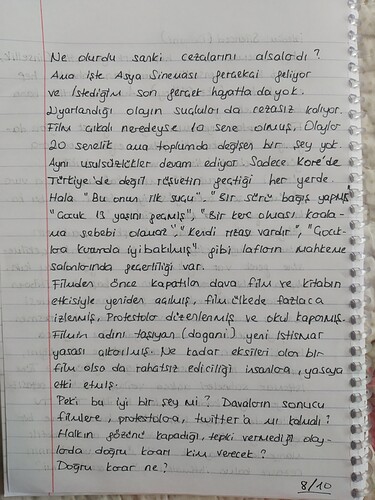 Ne olurdu sanki cezalarını alsalardı?
Ama işte Asya Sineması gerçekçi geliyor
ve İstediğim son gerçek hayatta da yok.
Uyarlandığı olayın suçluları da cezasız kalıyor.
Film çıkalı neredeyse 10 sene olmuş, Olaylar
20 senelik ama toplumda değişen bir şey yok.
Aynı usulsüzlükler devam ediyor. Sadece Kore'de
Türkiye'de değil rüşvetin geçtiği her yerde.
Hala "Bu onun ilk suçu". "Bir sürü bağış yapmış"
"Çocuk 13 yaşını geçmiş", "Bir kere olması karala-
ma sebebi olamaz", "Kendi rızası vardır", "Çocuk-
lara kurumda iyi bakılmış" gibi lafların mahkeme
salonlarında geçerliliği var.
Filmden önce kapatılan dava film ve kitabın
etkisiyle yeniden açılmış, film ülkede fazlaca
izlenmiş, Protestolar düzenlenmiş ve okul kapanmış.
Filmin adını taşıyan (dogani) yeni istismar
yasası çıkarılmış. Ne kadar eksileri olan bir
film olsa da rahatsız ediciliği insanlara, yasaya
etki etmiş.
Peki bu iyi bir şey mi? Davaların sonucu
filmlere, protestolara, twitter'a mı kalmalı?
Halkın gözünü kapadığı, tepki vermediği olay-
larda doğru kararı kim verecek?
Doğru karar ne?
8/10